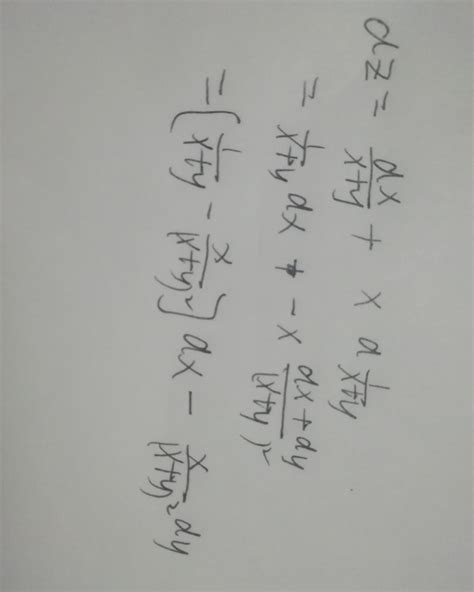 dz = \frac{dx}{x+y} + x d \frac{1}{x+y}
= \frac{1}{x+y} dx + - x \frac{dx+dy}{(x+y)^2}
= [\frac{1}{x+y} - \frac{x}{(x+y)^2}] dx - \frac{x}{(x+y)^2} dy